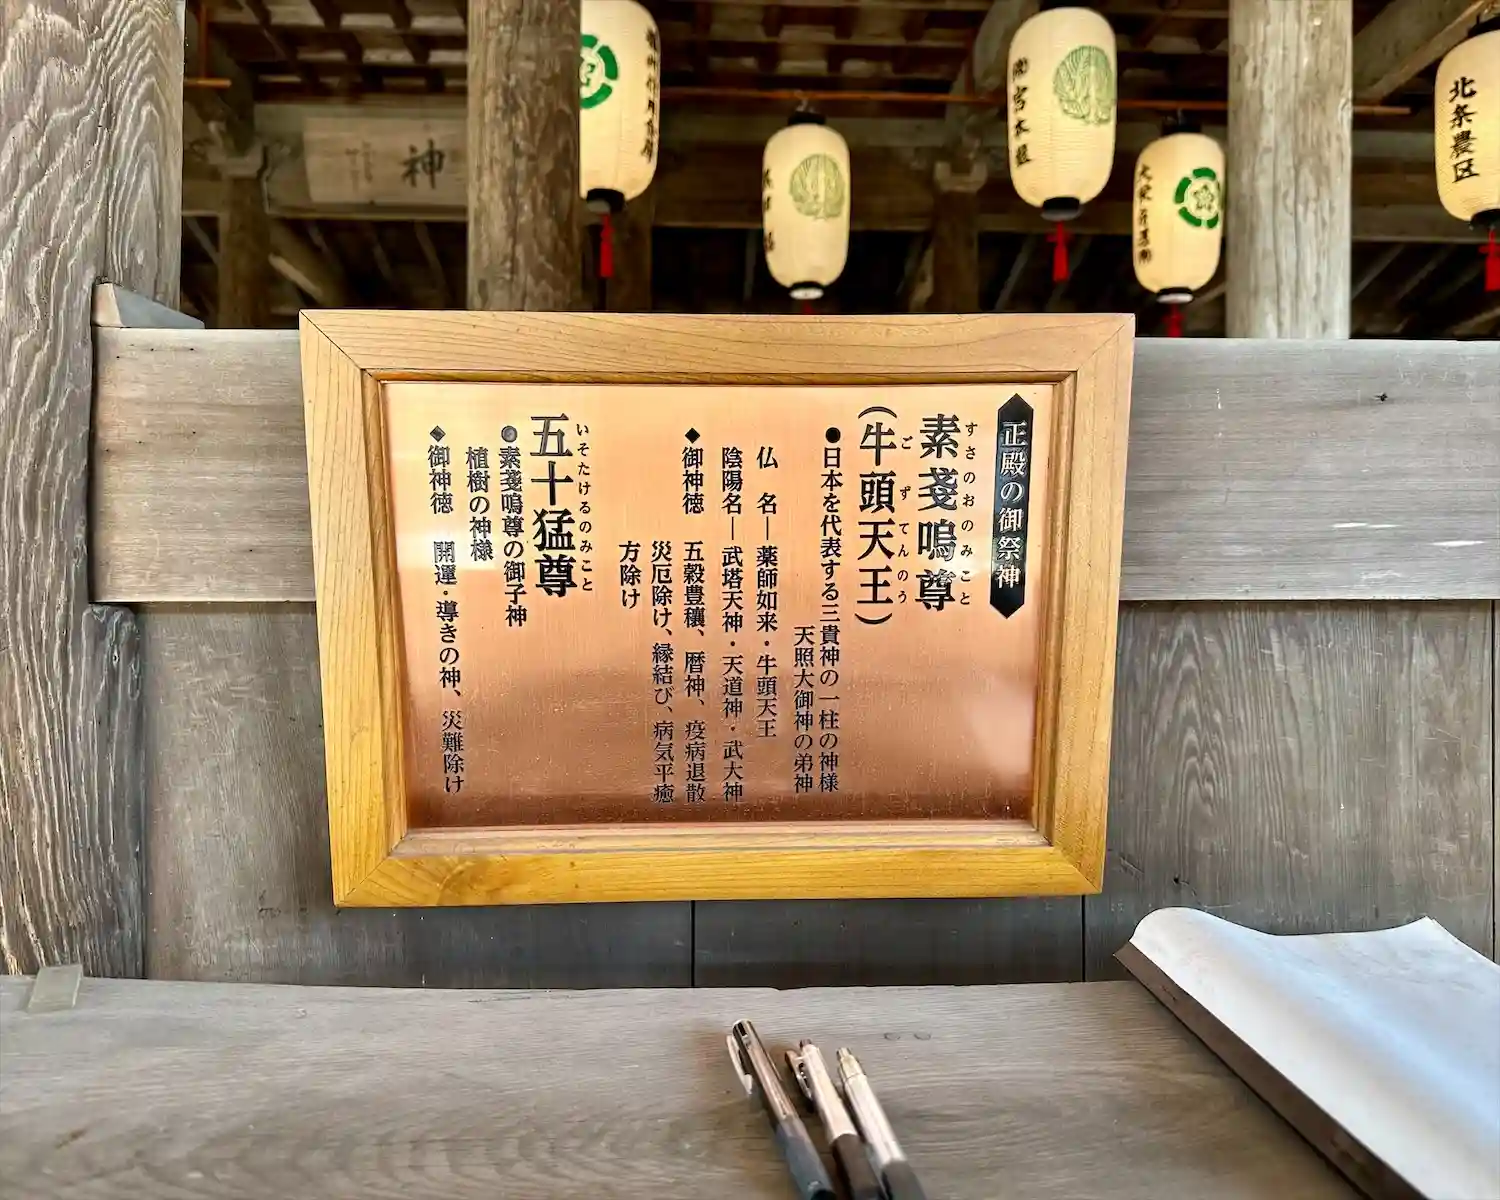 正殿の御祭神
素戔嗚尊
すさのおのみこと
（牛頭天王）
ごずてんのう
●日本を代表する三貴神の一柱の神様
天照大御神の弟神
仏　名―薬師如来・牛頭天王
陰陽名―武塔天神・天道神・武大神
◆御神徳　五穀豊穣、暦神、疫病退散
災厄除け、縁結び、病気平癒
方除け
五十猛尊
いそたけるのみこと
●素戔嗚尊の御子神
植樹の神様
◆御神徳　開運・導きの神、災難除け
北条農匠
宮本
神